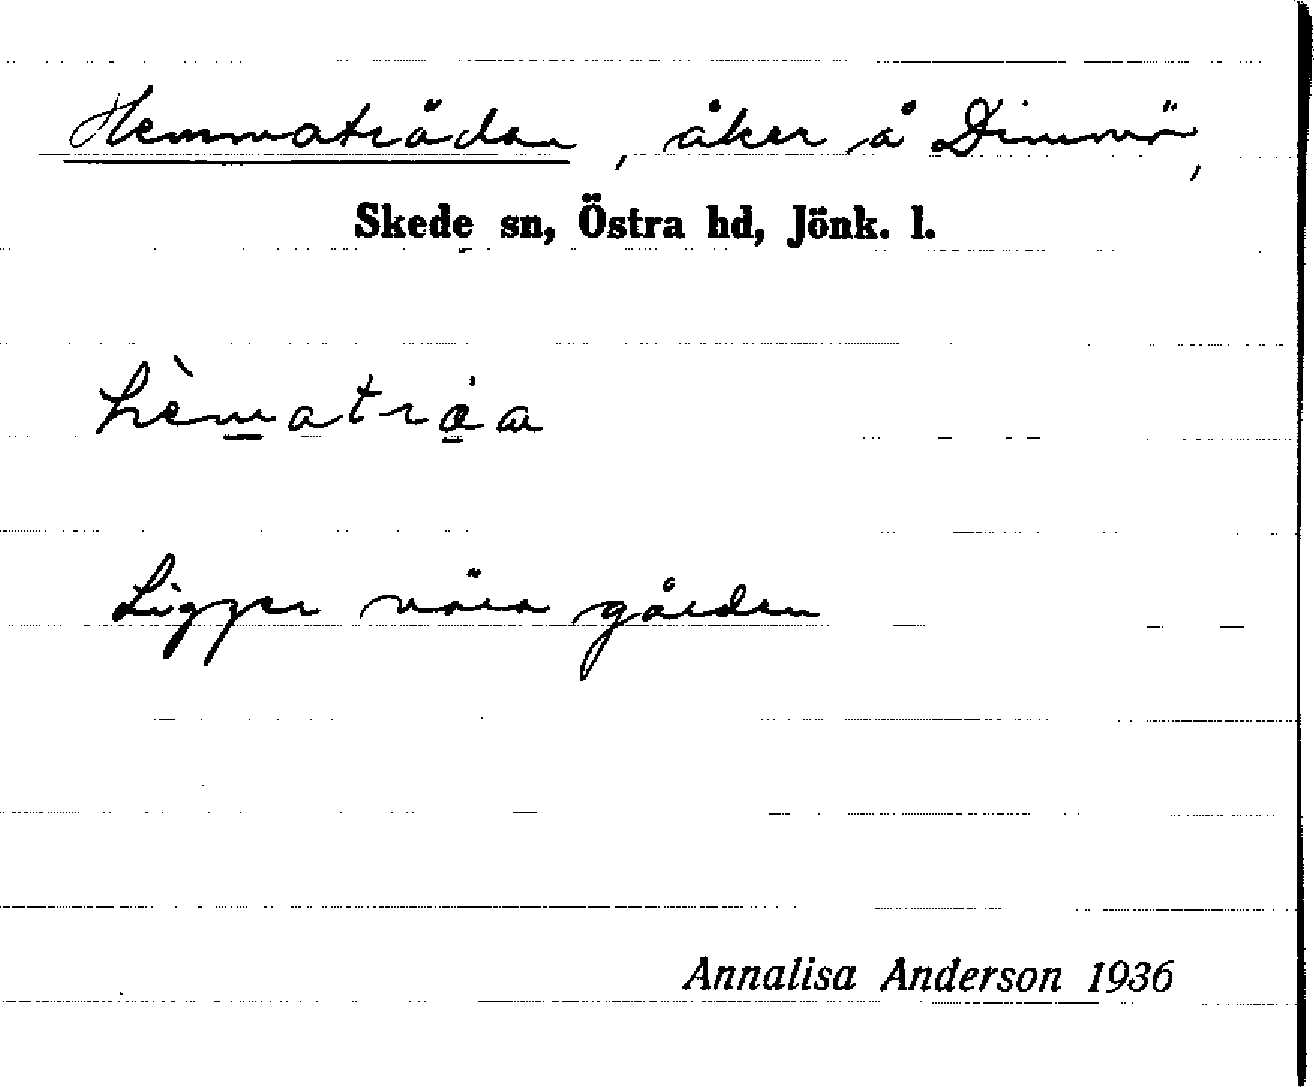 Hemmaträdan, åker å Dimmö,
Skede sn, Östra hd, Jönk. l.
hèmatræa
Ligger nära gården
Annalisa Anderson 1936